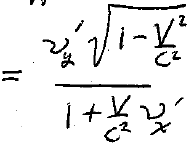 = v'_y √(1 - V²/c²) / (1 + V/c² v'_x)